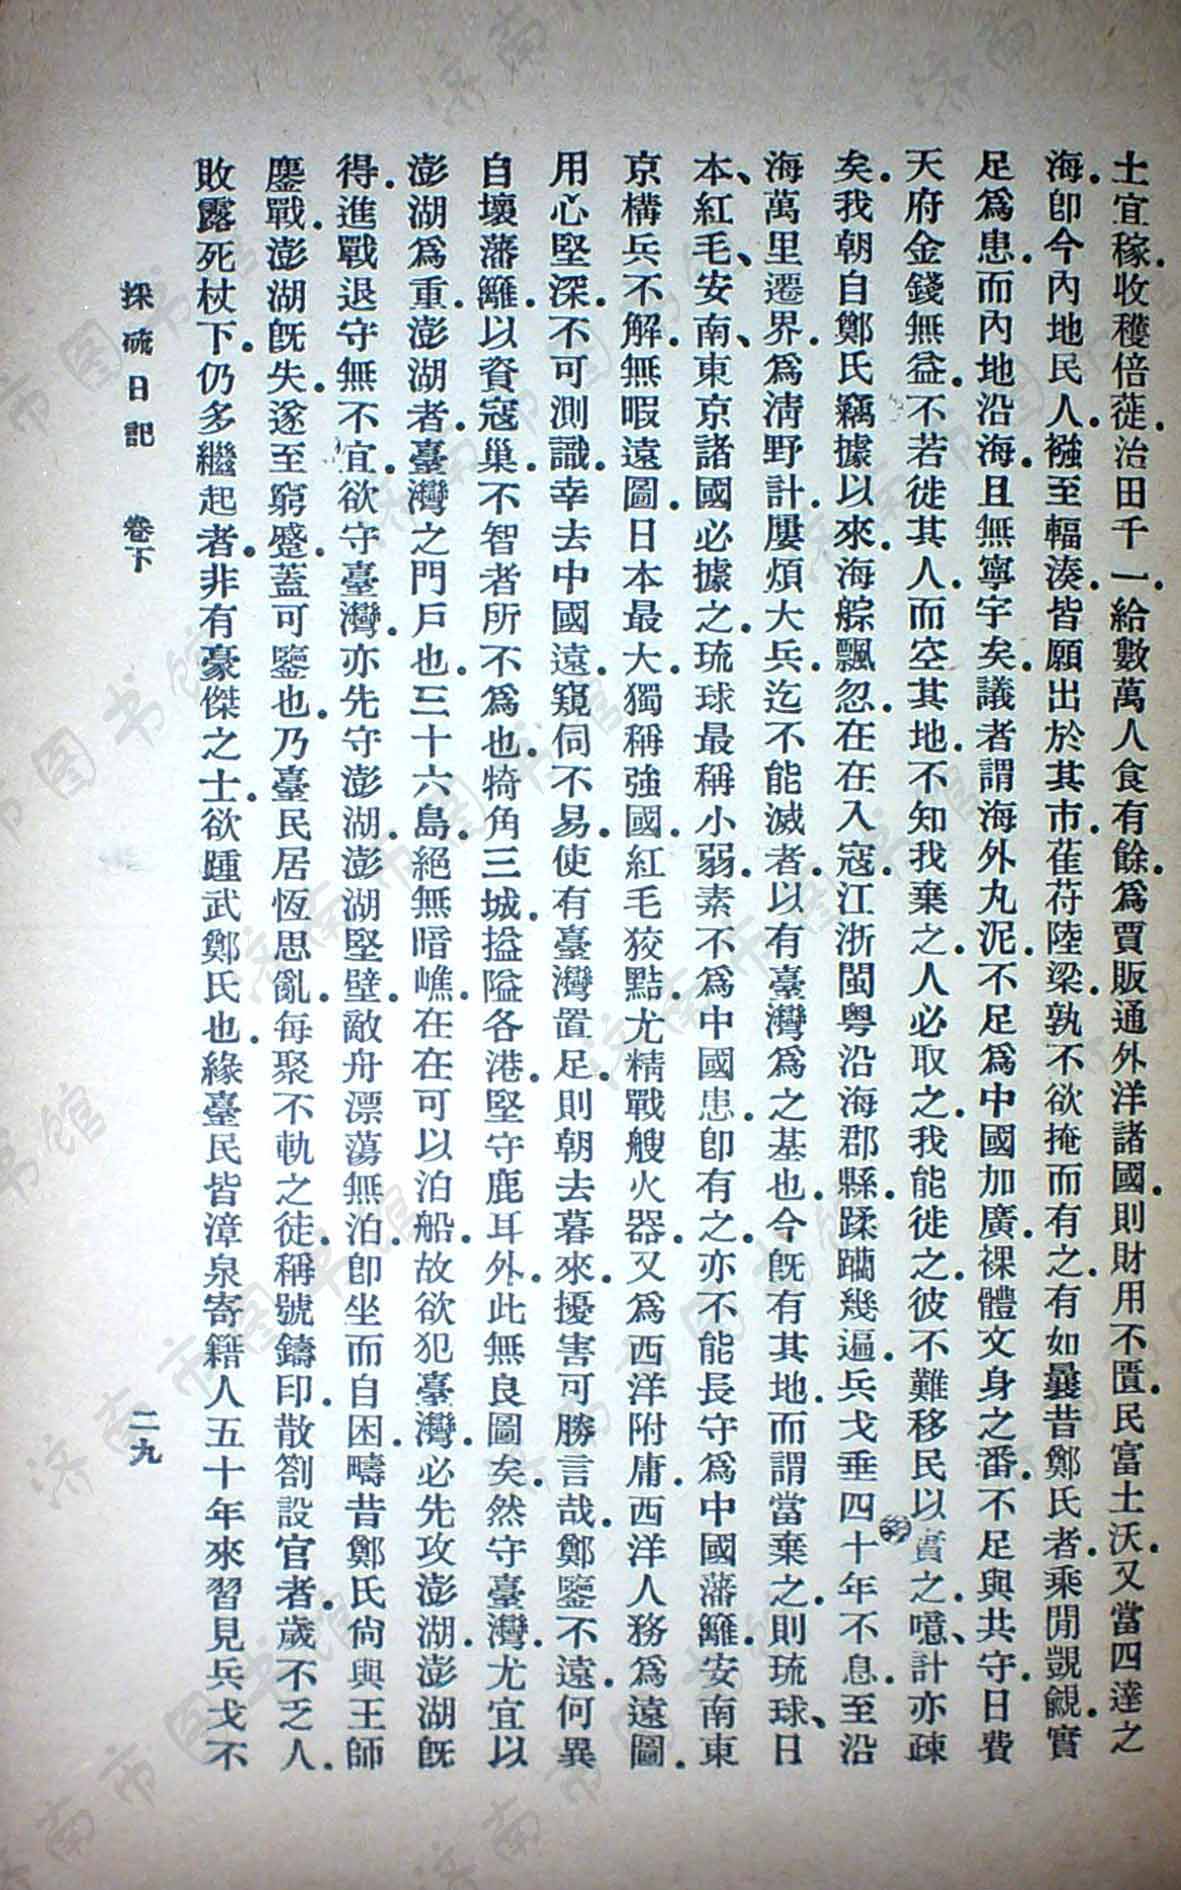 土宜稼.收穫倍蓰.治田千一.給數萬人食有餘.爲賈販通外洋諸國.則財用不匱.民富土沃.又當四達之
海.卽今內地民人.襁至輻湊.皆願出於其市.萑苻陸梁.孰不欲掩而有之.有如曩昔鄭氏者.乘閒覬覦.實
足爲患.而內地沿海.且無寧宇矣.議者謂海外丸泥.不足爲中國加廣.裸體文身之番.不足與共守.日費
天府金錢無益.不若徙其人.而空其地.不知我棄之.人必取之.我能徙之.彼不難移民以實之.噫、計亦疎
矣.我朝自鄭氏竊據以來.海艅飄忽.在在入寇.江浙閩粵沿海郡縣.蹂躪幾遍.兵戈垂四十年不息.至沿
海萬里遷界.爲淸野計.屢煩大兵.迄不能滅者.以有臺灣爲之基也.今旣有其地.而謂當棄之.則琉球、日
本、紅毛、安南、東京諸國必據之.琉球最稱小弱.素不爲中國患.卽有之.亦不能長守爲中國藩籬.安南東
京構兵不解.無暇遠圖.日本最大.獨稱強國.紅毛狡黠.尤精戰艘火器.又爲西洋附庸.西洋人務爲遠圖.
用心堅深.不可測識.幸去中國遠.窺伺不易.使有臺灣置足.則朝去暮來.擾害可勝言哉.鄭鑒不遠.何異
自壞藩籬.以資寇巢.不智者所不爲也.犄角三城.搤隘各港.堅守鹿耳外.此無良圖矣.然守臺灣.尤宜以
澎湖爲重.澎湖者.臺灣之門戶也.三十六島.絕無暗嶕.在在可以泊船.故欲犯臺灣.必先攻澎湖.澎湖旣
得.進戰退守無不宜.欲守臺灣.亦先守澎湖.澎湖堅壁.敵舟漂蕩無泊.卽坐而自困.疇昔鄭氏尙與王師
鏖戰.澎湖旣失.遂至窮蹙.蓋可鑒也.乃臺民居恆思亂.每聚不軌之徒.稱號鑄印.散劄設官者.歲不乏人.
敗露死杖下.仍多繼起者.非有豪傑之士.欲踵武鄭氏也.緣臺民皆漳泉寄籍人五十年來習見兵戈不
採硫日記 卷下 二九
济南市图书馆